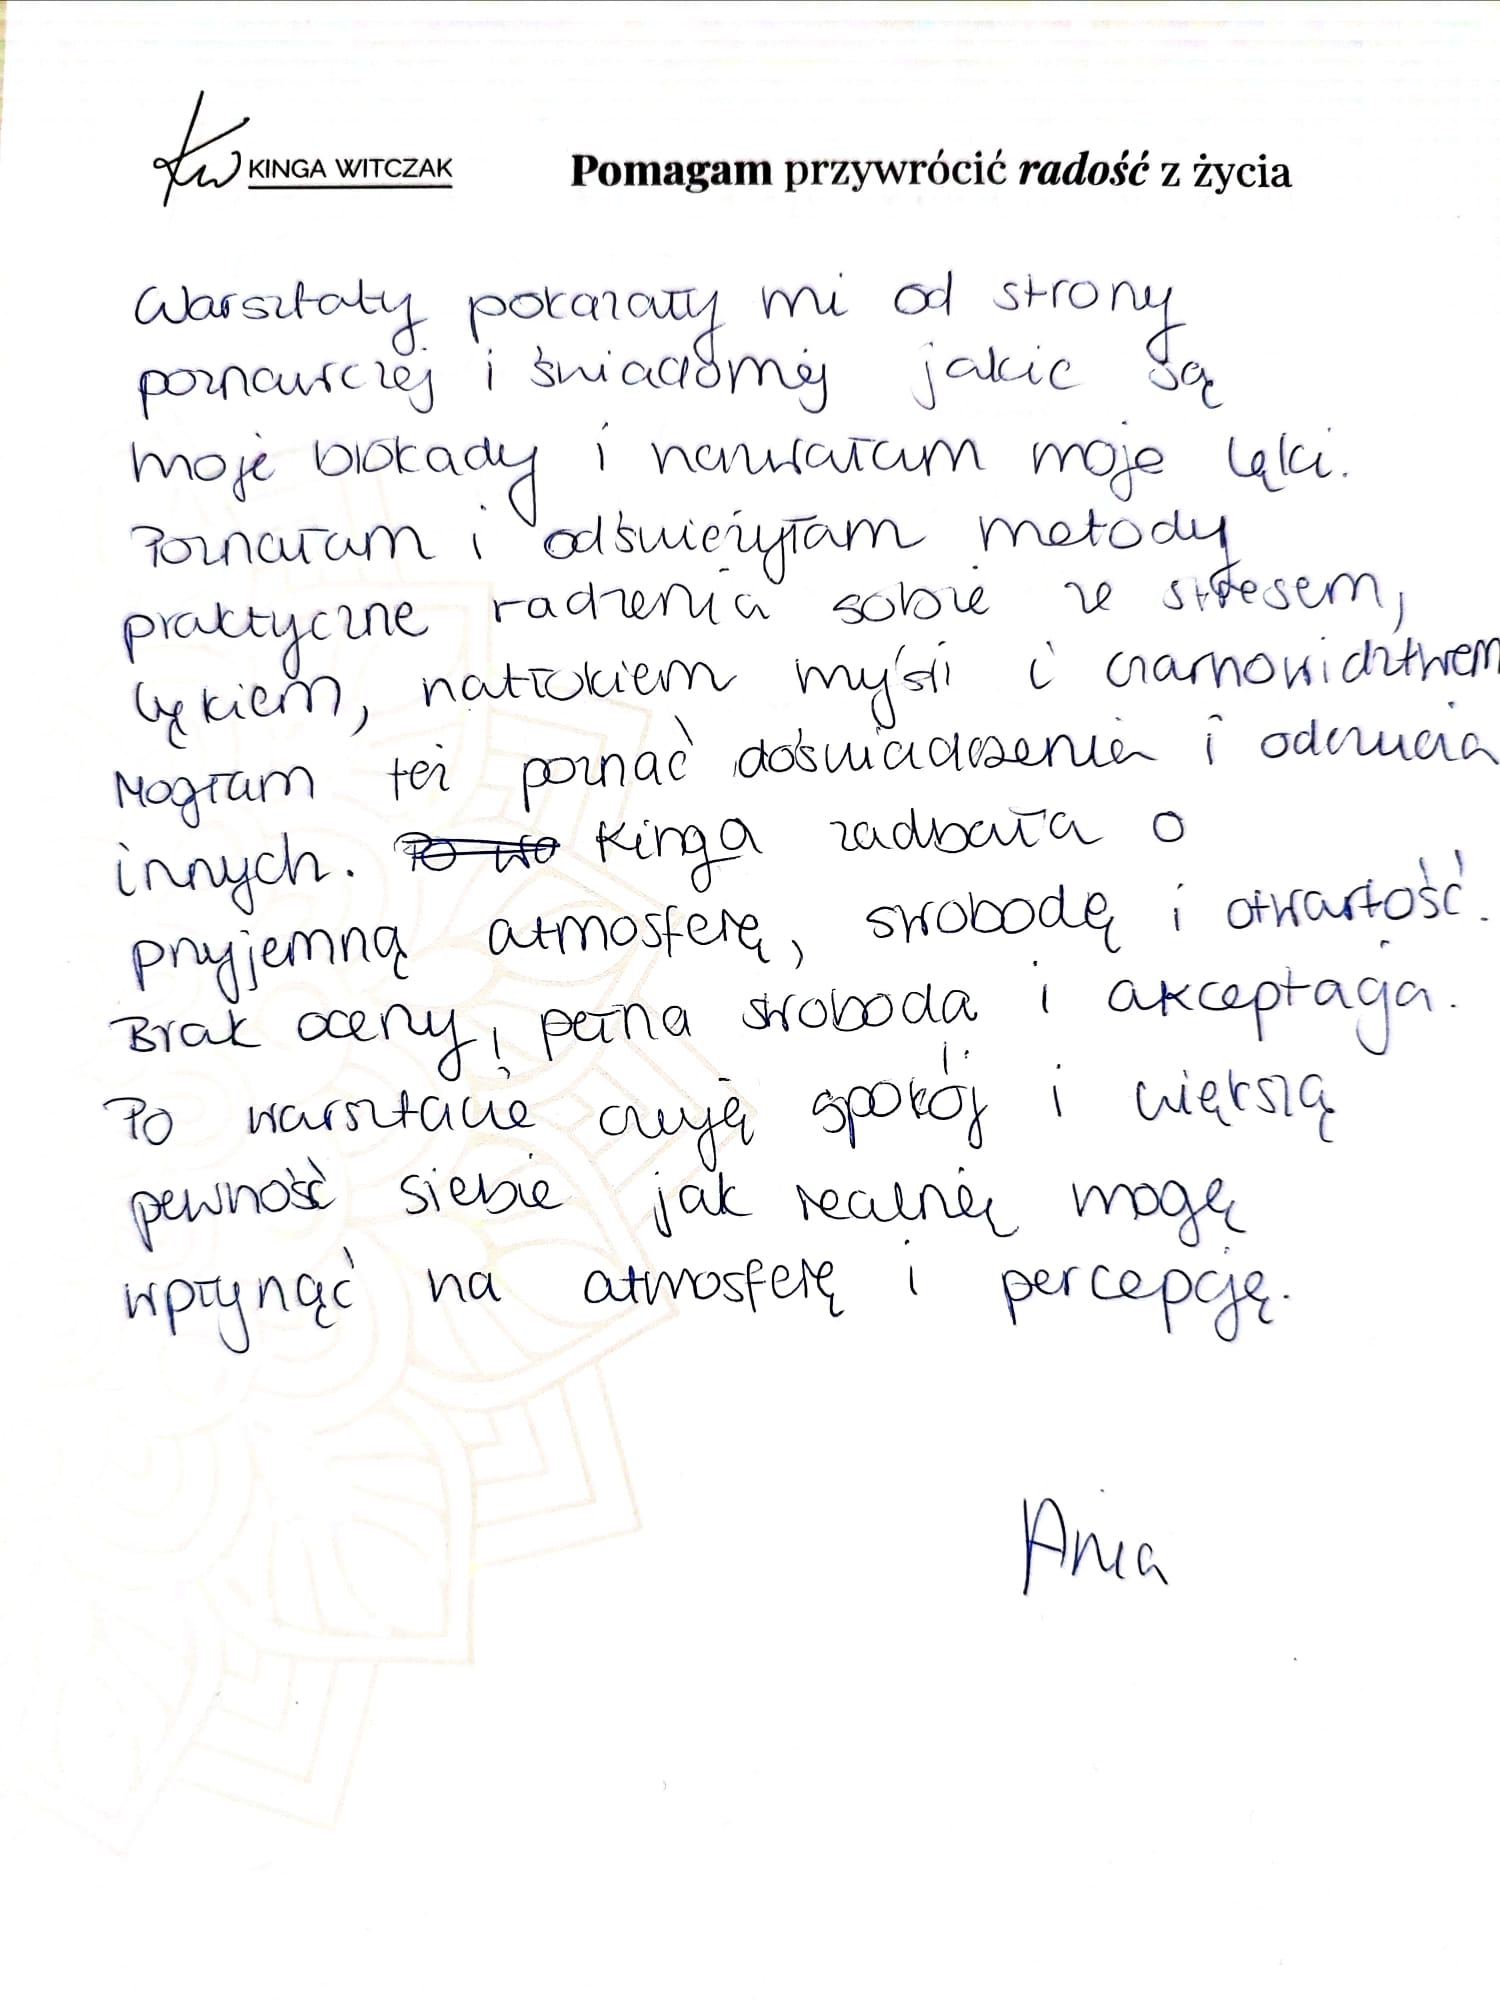 KW KINGA WITCZAK Pomagam przywrócić radość z życia
Warsztaty pokazały mi od strony
poznawczej i świadomej jakie są
moje blokady i nazwałam moje lęki.
Poznałam i odświeżyłam metody
praktyczne radzenia sobie ze stresem,
lękiem, natłokiem myśli i czarnowidztwem
Mogłam też poznać doświadczenia i odczucia
innych. Kinga zadbała o
przyjemną atmosferę, swobodę i otwartość.
Brak oceny, pełna swoboda i akceptacja.
Po warsztacie czuję spokój i większą
pewność siebie jak realnie mogę
wpłynąć na atmosferę i percepcję.
Ania